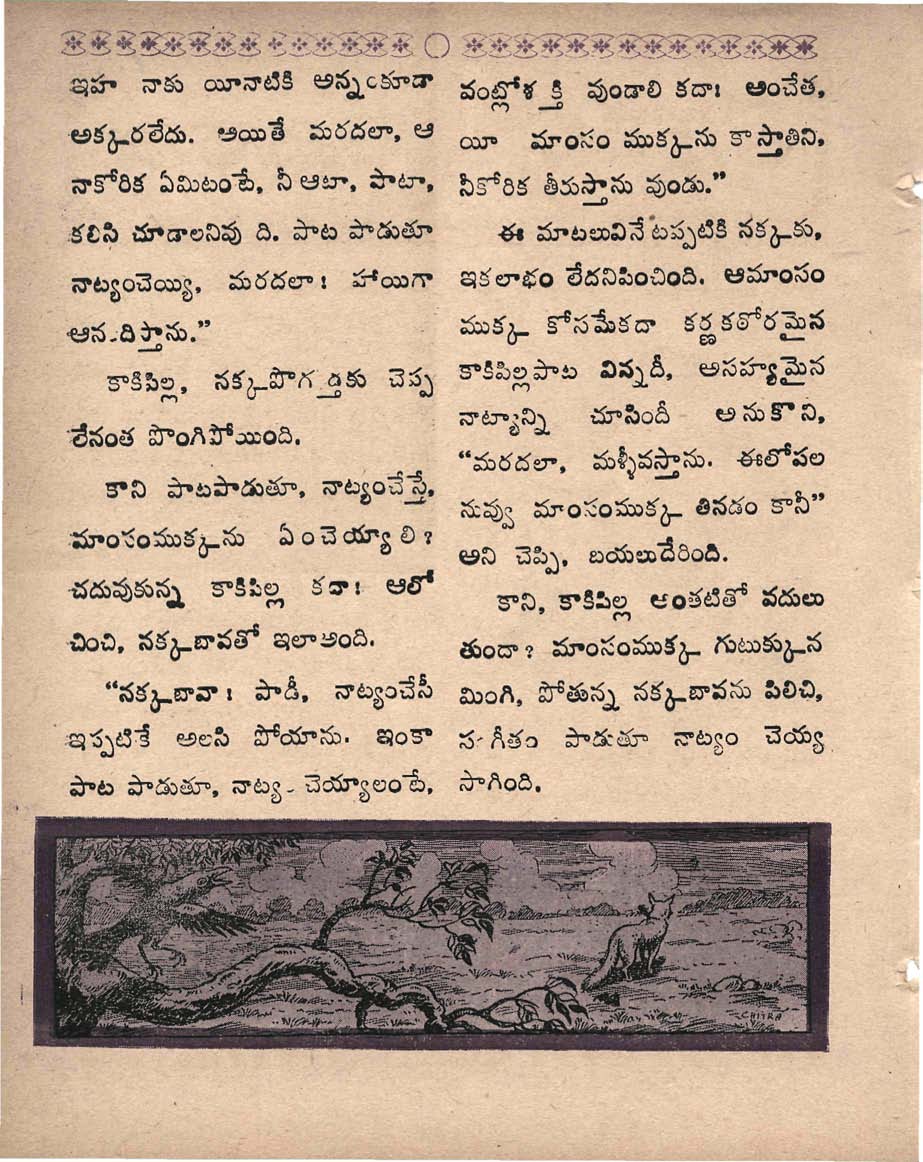 ఇహ నాకు యీనాటికి అన్నంకూడా
అక్కరలేదు. అయితే మరదలా, ఆ
నాకోరిక ఏమిటంటే, నీ ఆటా, పాటా,
కలిసి చూడాలనివు ది. పాట పాడుతూ
నాట్యంచెయ్యి, మరదలా! హాయిగా
ఆన-దిస్తాను.”
కాకిపిల్ల, నక్కపొగడ్తకు చెప్ప
లేనంత పొంగిపోయింది.
కాని పాటపాడుతూ, నాట్యంచేస్తే,
మాంసంముక్కను ఏంచెయ్యాలి?
చదువుకున్న కాకిపిల్ల కదా! ఆలో
చించి, నక్కబావతో ఇలా అంది.
“నక్కబావా! పాడీ, నాట్యంచేసీ
ఇప్పటికే అలసి పోయాను. ఇంకా
పాట పాడుతూ, నాట్య- చెయ్యాలంటే,
వంట్లోశక్తి వుండాలి కదా! అంచేత,
యీ మాంసం ముక్కను కాస్తాతిని,
నీకోరిక తీరుస్తాను వుండు.”
ఈ మాటలువినేటప్పటికి నక్కకు,
ఇకలాభం లేదనిపించింది. ఆమాంసం
ముక్క కోసమేకదా కర్ణకఠోరమైన
కాకిపిల్లపాట విన్నదీ, అసహ్యమైన
నాట్యాన్ని చూసిందీ అనుకొని,
“మరదలా, మళ్ళీవస్తాను. ఈలోపల
నువ్వు మాంసంముక్క తినడం కానీ”
అని చెప్పి, బయలుదేరింది.
కాని, కాకిపిల్ల అంతటితో వదులు
తుందా? మాంసంముక్క గుటుక్కున
మింగి, పోతున్న నక్కబావను పిలిచి,
స-గీతం పాడుతూ నాట్యం చెయ్య
సాగింది.
CHITRA